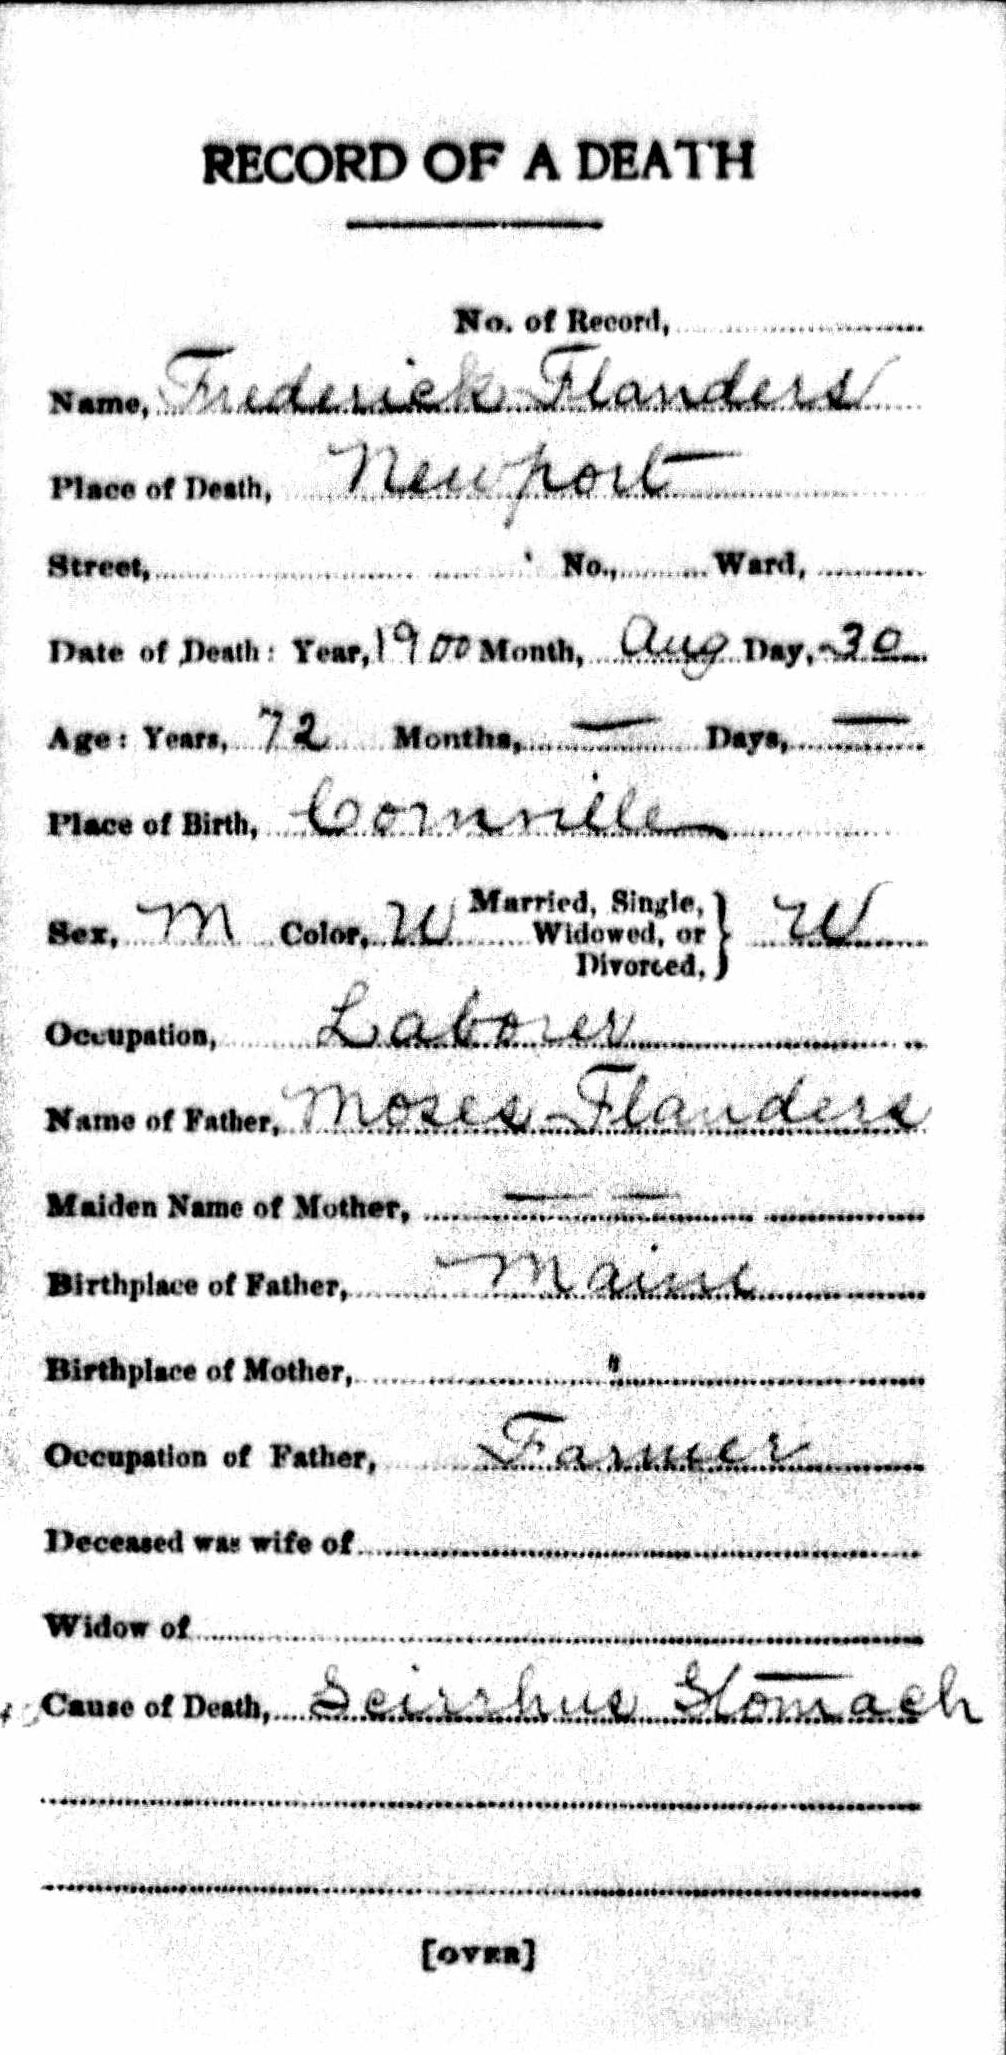 RECORD OF A DEATH
No. of Record,
Name, Frederick Flanders
Place of Death, Newport
Street, No., Ward,
Date of Death: Year, 1900 Month, Aug Day, 30
Age: Years, 72 Months, — Days, —
Place of Birth, Cornville
Sex, M Color, W Married, Single, Widowed, or Divorced, } W
Occupation, Laborer
Name of Father, Moses Flanders
Maiden Name of Mother, — —
Birthplace of Father, Maine
Birthplace of Mother, "
Occupation of Father, Farmer
Deceased was wife of
Widow of
Cause of Death, Scirrhus Stomach
[OVER]